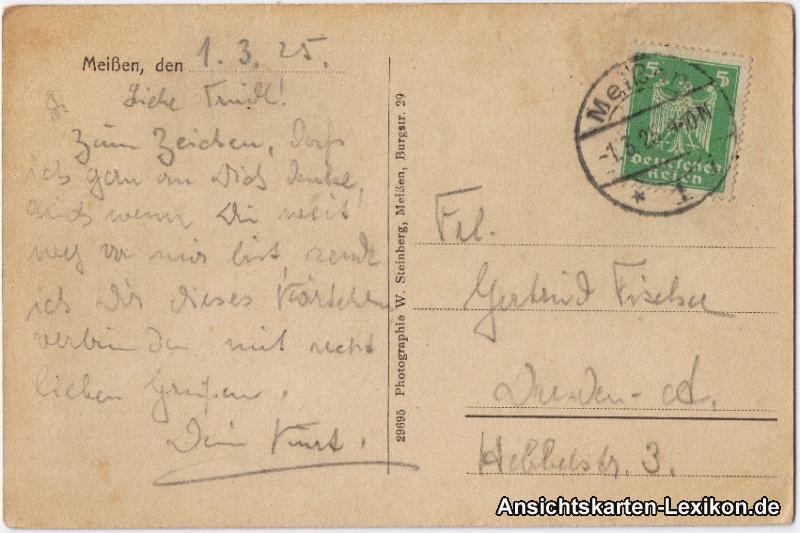 Meißen, den 1.3.25.
Liebe Trudl!
Zum Zeichen, daß
ich gern an Dich denke,
auch wenn Du weit
weg von mir bist, sende
ich Dir dieses Kärtchen
verbunden mit recht
lieben Grüßen.
Dein Kurt.
29695 Photographie W. Steinberg, Meißen, Burgstr. 29
5 5
Deutsches
Reich
Meißen
-1.3.25
* 1
Frl.
Gertrud Fischer
Dresden-A.
Hebbelstr. 3.
Ansichtskarten-Lexikon.de